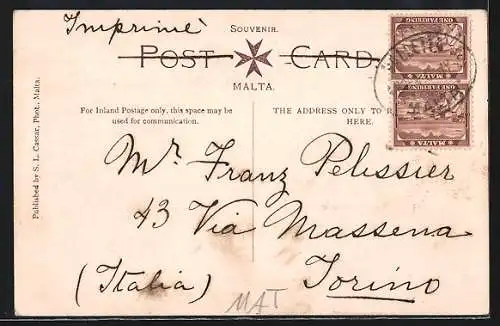 Imprimè
SOUVENIR.
POST CARD
MALTA.
For Inland Postage only, this space may be
used for communication.
THE ADDRESS ONLY TO
HERE.
Published by S. L. Cassar, Phot., Malta.
MALTA
ONE FARTHING
MALTA
ONE FARTHING
Mr. Franz Pelissier
43 Via Massena
(Italia) Torino
MAT